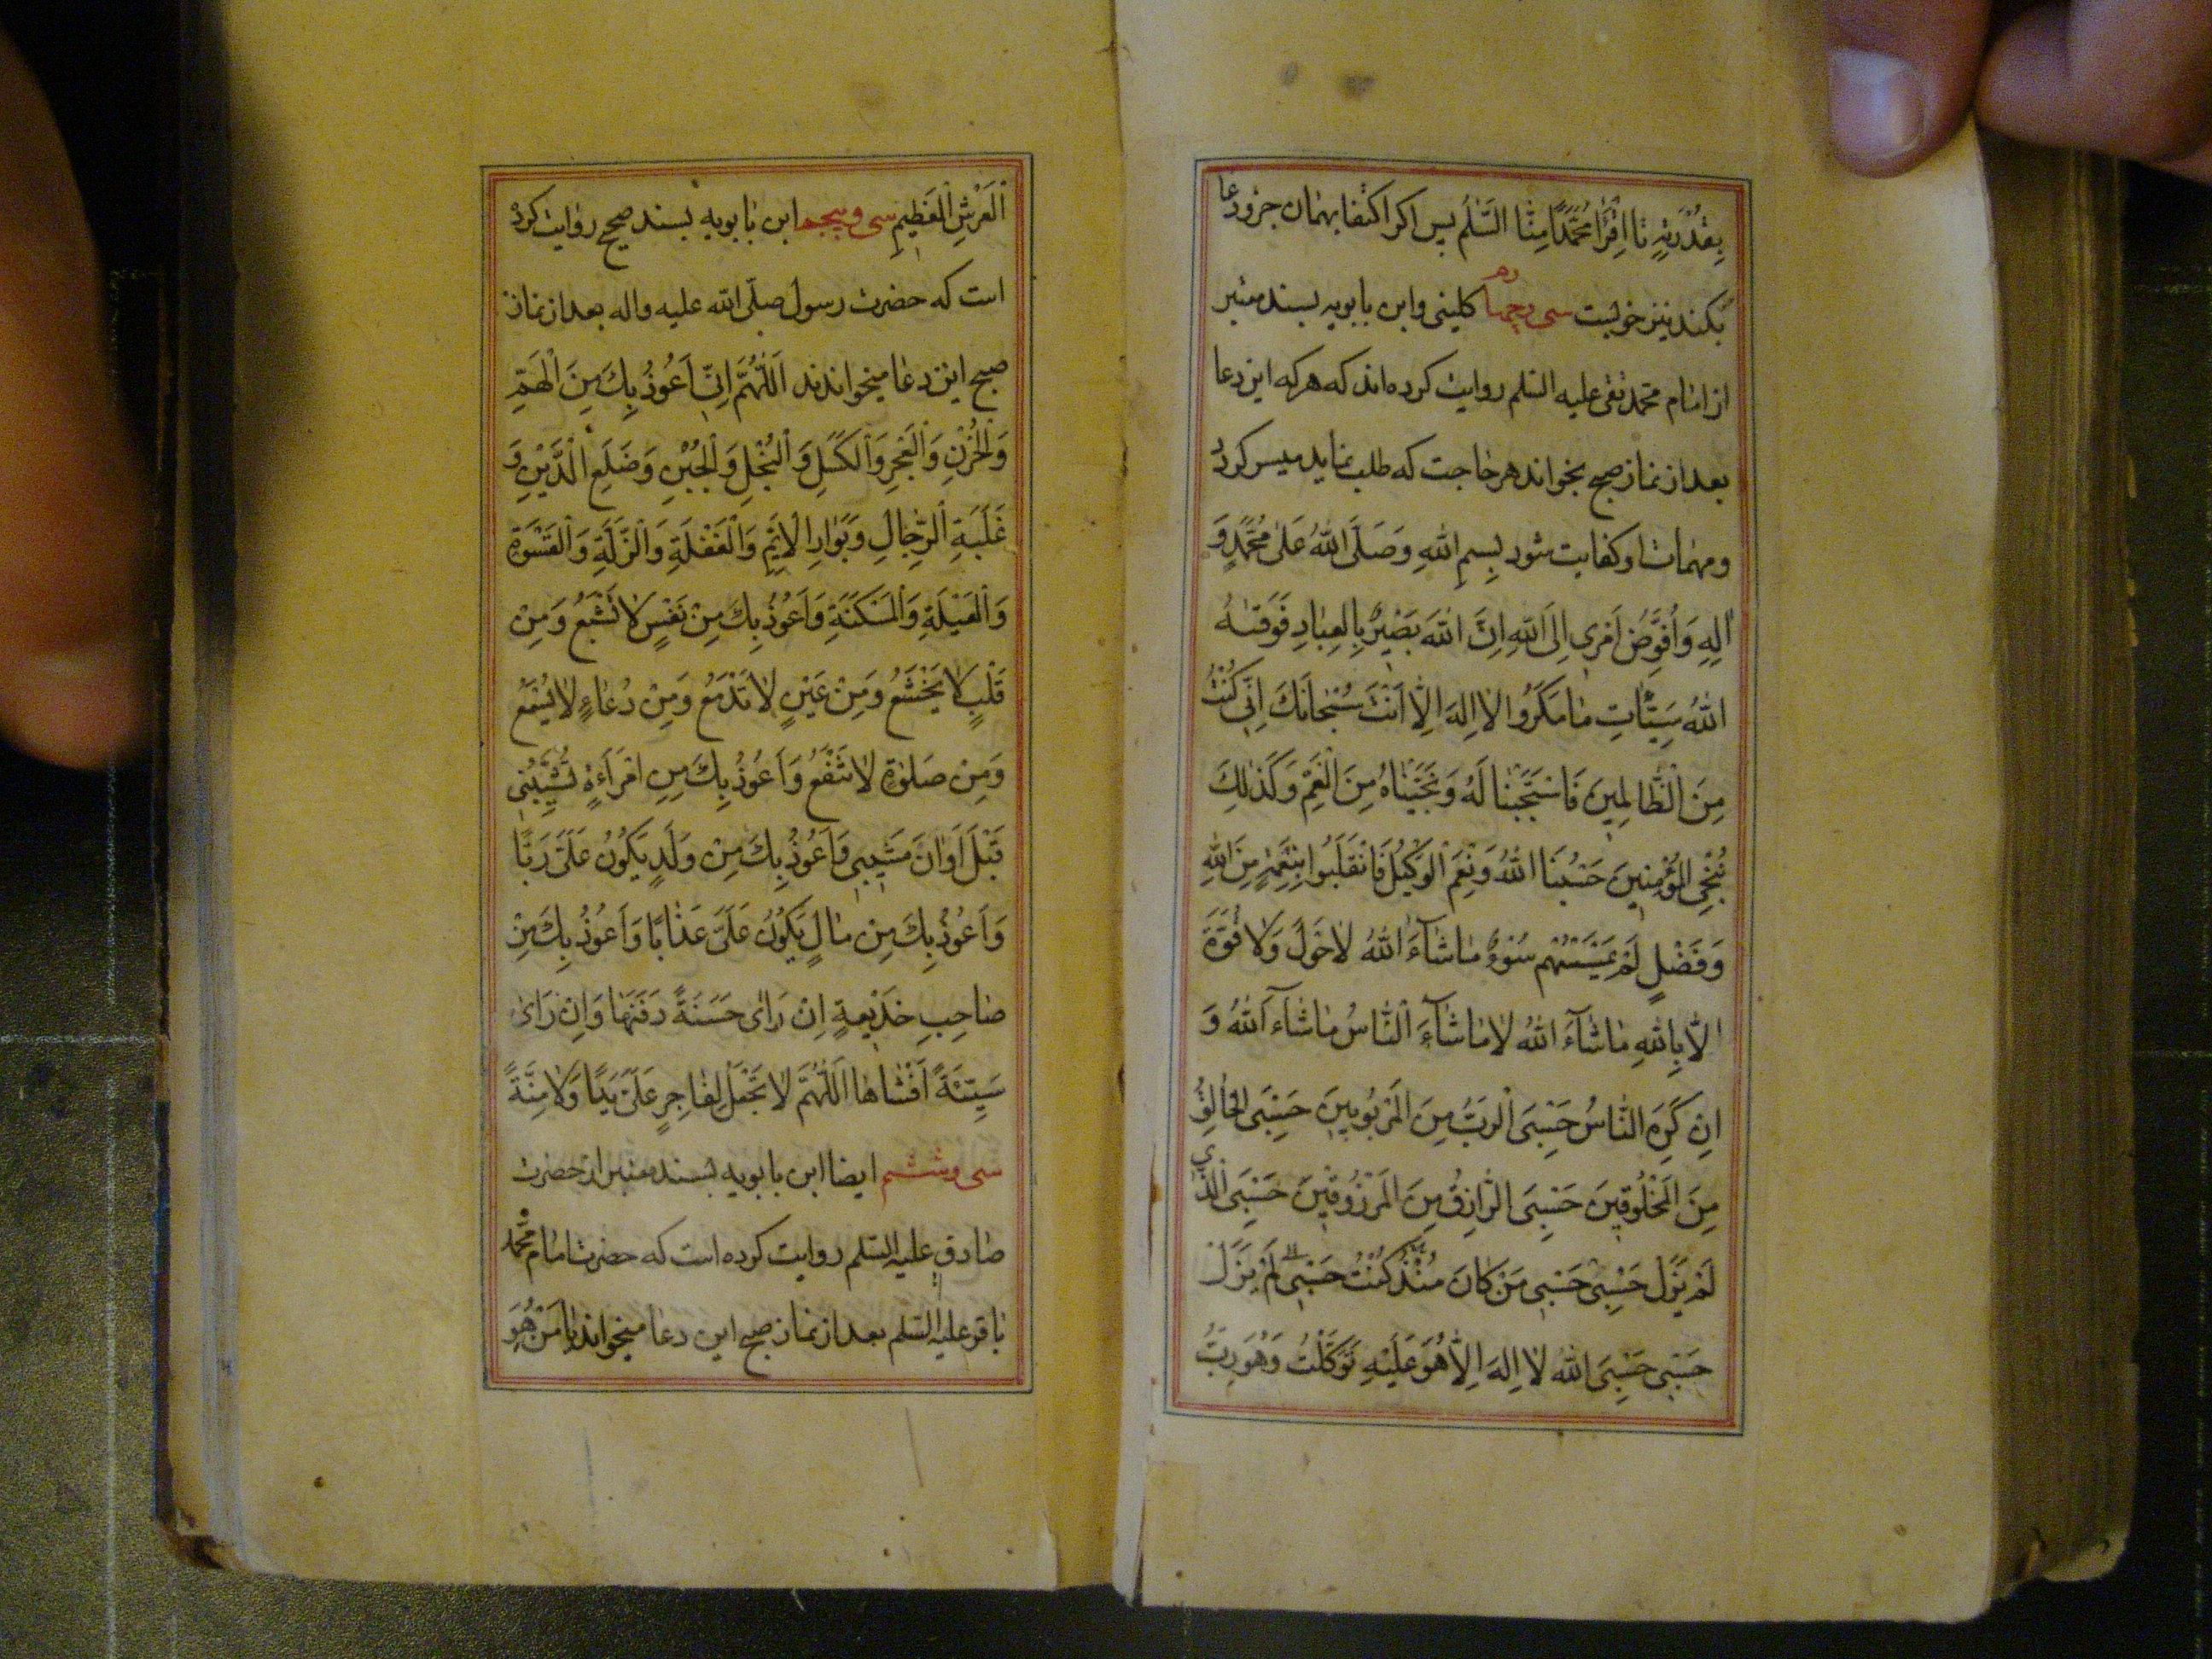 بِقُدْرَتِهِ نَا اِقْرَأْ مُحَمَّدًا مِنَّا السَّلٰمُ پس اکر اکتفا بهمان جزو دعا
بکند نیز خوبست سی و چهارم کلینی و ابن بابویه بسند معتبر
از امام محمد تقی علیه السلم روایت کرده‌اند که هر که این دعا
بعد از نماز صبح بخواند هر حاجت که طلب نماید میسر کردد
و مهمات او کفایت شود بِسمِ اللهِ وَصَلَّى اللهُ عَلىٰ مُحَمَّدٍ وَ
اٰلِهِ وَاُفَوِّضُ اَمْرِی اِلَى اللهِ اِنَّ اللهَ بَصِيْرٌ بِالعِبٰادِ فَوَقٰىهُ
اللهُ سَيِّئٰاتِ مٰا مَكَرُوا لاٰ اِلٰهَ اِلّٰا اَنْتَ سُبْحٰانَكَ اِنّٖی كُنْتُ
مِنَ الْظّٰالِمِينَ فَاسْتَجَبْنٰا لَهُ وَنَجَّيْنٰاهُ مِنَ الْغَمِّ وَكَذٰلِكَ
نُنْجِی الْمُؤْمِنِينَ حَسْبُنَا اللهُ وَنِعْمَ الْوَكِيْلُ فَانْقَلَبُوا بِنِعْمَةٍ مِنَ اللهِ
وَفَضْلٍ لَمْ يَمْسَسْهُمْ سُوْءٌ مٰا شٰاءَ اللهُ لاٰ حَوْلَ وَلاٰ قُوَّةَ
اِلّٰا بِاللهِ مٰا شٰآءَ اللهُ لاٰ مٰا شٰآءَ النّٰاسُ مٰا شٰآءَ اللهُ وَ
اِنْ كَرِهَ النّٰاسُ حَسْبِیَ الْرَبُّ مِنَ الْمَرْبُوبِينَ حَسْبِیَ الْخٰالِقُ
مِنَ الْمَخْلُوقِينَ حَسْبِیَ الرّٰازِقُ مِنَ الْمَرْزُوقِينَ حَسْبِیَ الَّذِي
لَمْ يَزَلْ حَسْبِی حَسْبِی مَنْ كٰانَ مُنْذُ كُنْتُ حَسْبِی لَمْ يَزَلْ
حَسْبِی حَسْبِیَ اللهُ لاٰ اِلٰهَ اِلاّٰ هُوَ عَلَيْهِ تَوَكَّلْتُ وَهُوَ رَبُّ
الْعَرْشِ الْعَظِيمِ سی و پنجم ابن بابویه بسند صحیح روایت کرده
است که حضرت رسول صلّی الله علیه و اله بعد از نماز
صبح این دعا میخواندند اَللّٰهُمَّ اِنِّی اَعُوْذُ بِكَ مِنَ الْهَمِّ
وَالْحُزْنِ وَالْعَجْزِ وَالْكَسَلِ وَالْبُخْلِ وَالْجُبْنِ وَضَلَعِ الْدَّيْنِ وَ
غَلَبَةِ الرِّجٰالِ وَبَوٰارِ الْاَيِّمِ وَالْغَفْلَةِ وَالْزَّلَّةِ وَالْقَسْوَةِ
وَالْعَيْلَةِ وَالْمَسْكَنَةِ وَاَعُوْذُ بِكَ مِنْ نَفْسٍ لاٰ تَشْبَعُ وَمِنْ
قَلْبٍ لاٰ يَخْشَعُ وَمِنْ عَيْنٍ لاٰ تَدْمَعُ وَمِنْ دُعٰاءٍ لاٰ يُسْمَعُ
وَمِنْ صَلٰوةٍ لاٰ تَنْفَعُ وَاَعُوْذُ بِكَ مِنِ امْرَاَةٍ تُشَيِّبُنِی
قَبْلَ اَوٰانِ مَشِيبِی وَاَعُوْذُ بِكَ مِنْ وَلَدٍ يَكُوْنُ عَلَیَّ رَبًّا
وَاَعُوْذُ بِكَ مِنْ مٰالٍ يَكُوْنُ عَلَیَّ عَذٰابًا وَاَعُوْذُ بِكَ مِنْ
صٰاحِبِ خَدِيْعَةٍ اِنْ رَاٰى حَسَنَةً دَفَنَهٰا وَاِنْ رَاٰى
سَيِّئَةً اَفْشٰاهٰا اَللّٰهُمَّ لاٰ تَجْعَلْ لِفٰاجِرٍ عَلَیَّ يَدًا وَلاٰ مِنَّةً
سی و ششم ایضا ابن بابویه بسند معتبر از حضرت
صادق علیه السلم روایت کرده است که حضرت امام محمد
باقر علیه السلم بعد از نماز صبح این دعا میخواند یٰا مَنْ هُوَ